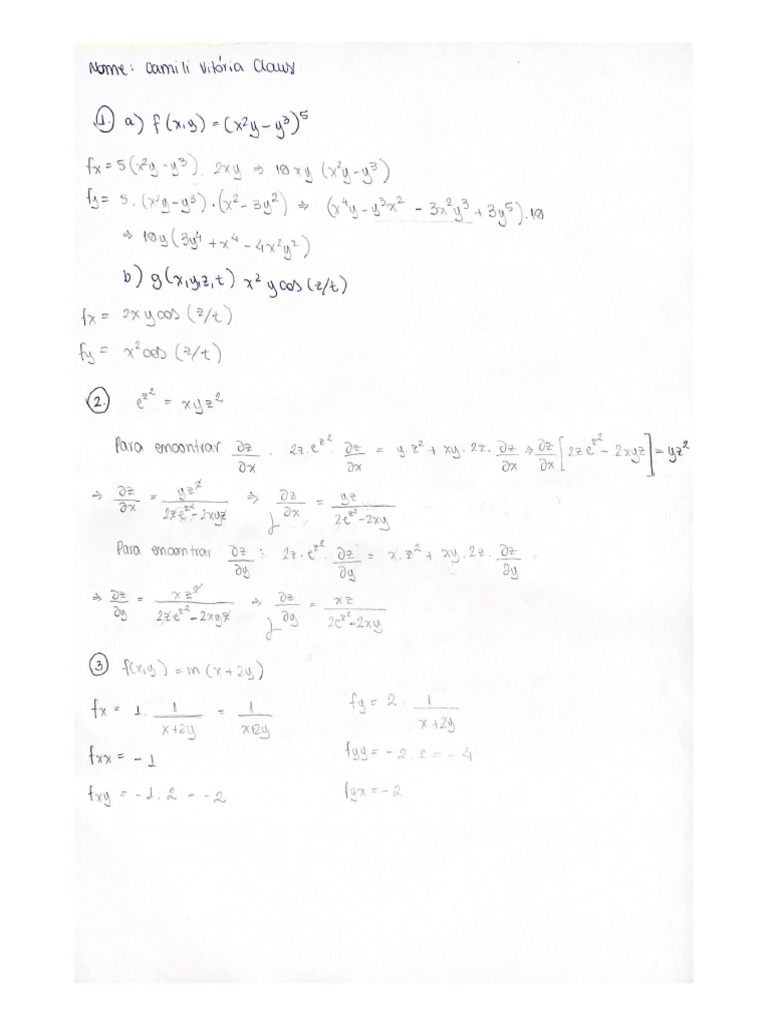 Nome: Camili Vitória Claus
1. a) f(x,y) = (x²y - y³)⁵
fx = 5(x²y - y³). 2xy ⇒ 10xy (x²y - y³)
fy = 5. (x²y - y³) . (x² - 3y²) ⇒ (x⁴y - y³x² - 3x²y³ + 3y⁵).10
⇒ 10y(3y⁴ + x⁴ - 4x²y²)
b) g(x,y,z,t) x² y cos (z/t)
fx = 2xy cos (z/t)
fy = x² cos (z/t)
2. e^z² = xyz²
Para encontrar ∂z/∂x . 2z.e^z² . ∂z/∂x = y.z² + xy.2z. ∂z/∂x ⇒ ∂z/∂x [2ze^z² - 2xyz] = yz²
⇒ ∂z/∂x = yz²/(2ze^z² - 2xyz) ⇒ ∂z/∂x = yz/(2e^z² - 2xy)
Para encontrar ∂z/∂y : 2z.e^z² . ∂z/∂y = x.z² + xy.2z. ∂z/∂y
⇒ ∂z/∂y = xz²/(2ze^z² - 2xyz) ⇒ ∂z/∂y = xz/(2e^z² - 2xy)
3 f(x,y) = ln (x + 2y)
fx = 1. 1/(x+2y) = 1/(x+2y) fy = 2. 1/(x+2y)
fxx = - 1 fyy = - 2.2 = - 4
fxy = - 1.2 = - 2 fyx = - 2